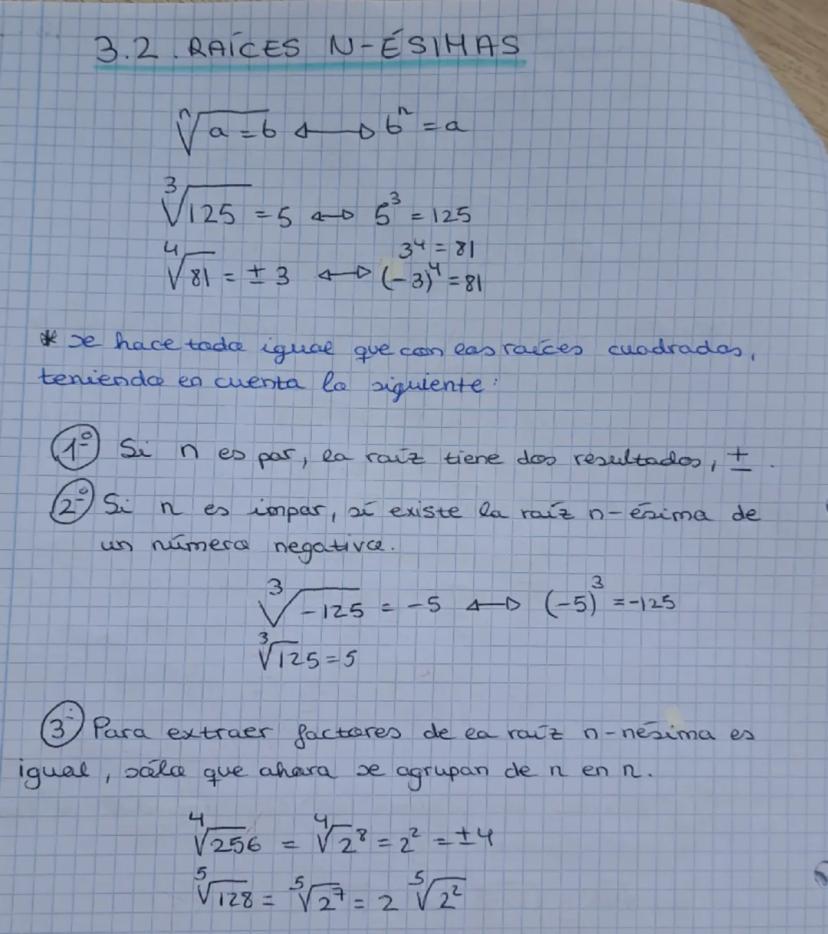 3.2. RAÍCES N-ÉSIMAS
ⁿ√a = b ⟷ bⁿ = a
³√125 = 5 ⟷ 5³ = 125
3⁴ = 81
⁴√81 = ± 3 ⟷ (-3)⁴ = 81
* Se hace todo igual que con las raíces cuadradas,
teniendo en cuenta lo siguiente:
1º Si n es par, la raíz tiene dos resultados, ±.
2º Si n es impar, sí existe la raíz n-ésima de
un número negativo.
³√-125 = -5 ⟷ (-5)³ = -125
³√125 = 5
3º Para extraer factores de la raíz n-nésima es
igual, sólo que ahora se agrupan de n en n.
⁴√256 = ⁴√2⁸ = 2² = ±4
⁵√128 = ⁵√2⁷ = 2 ⁵√2²